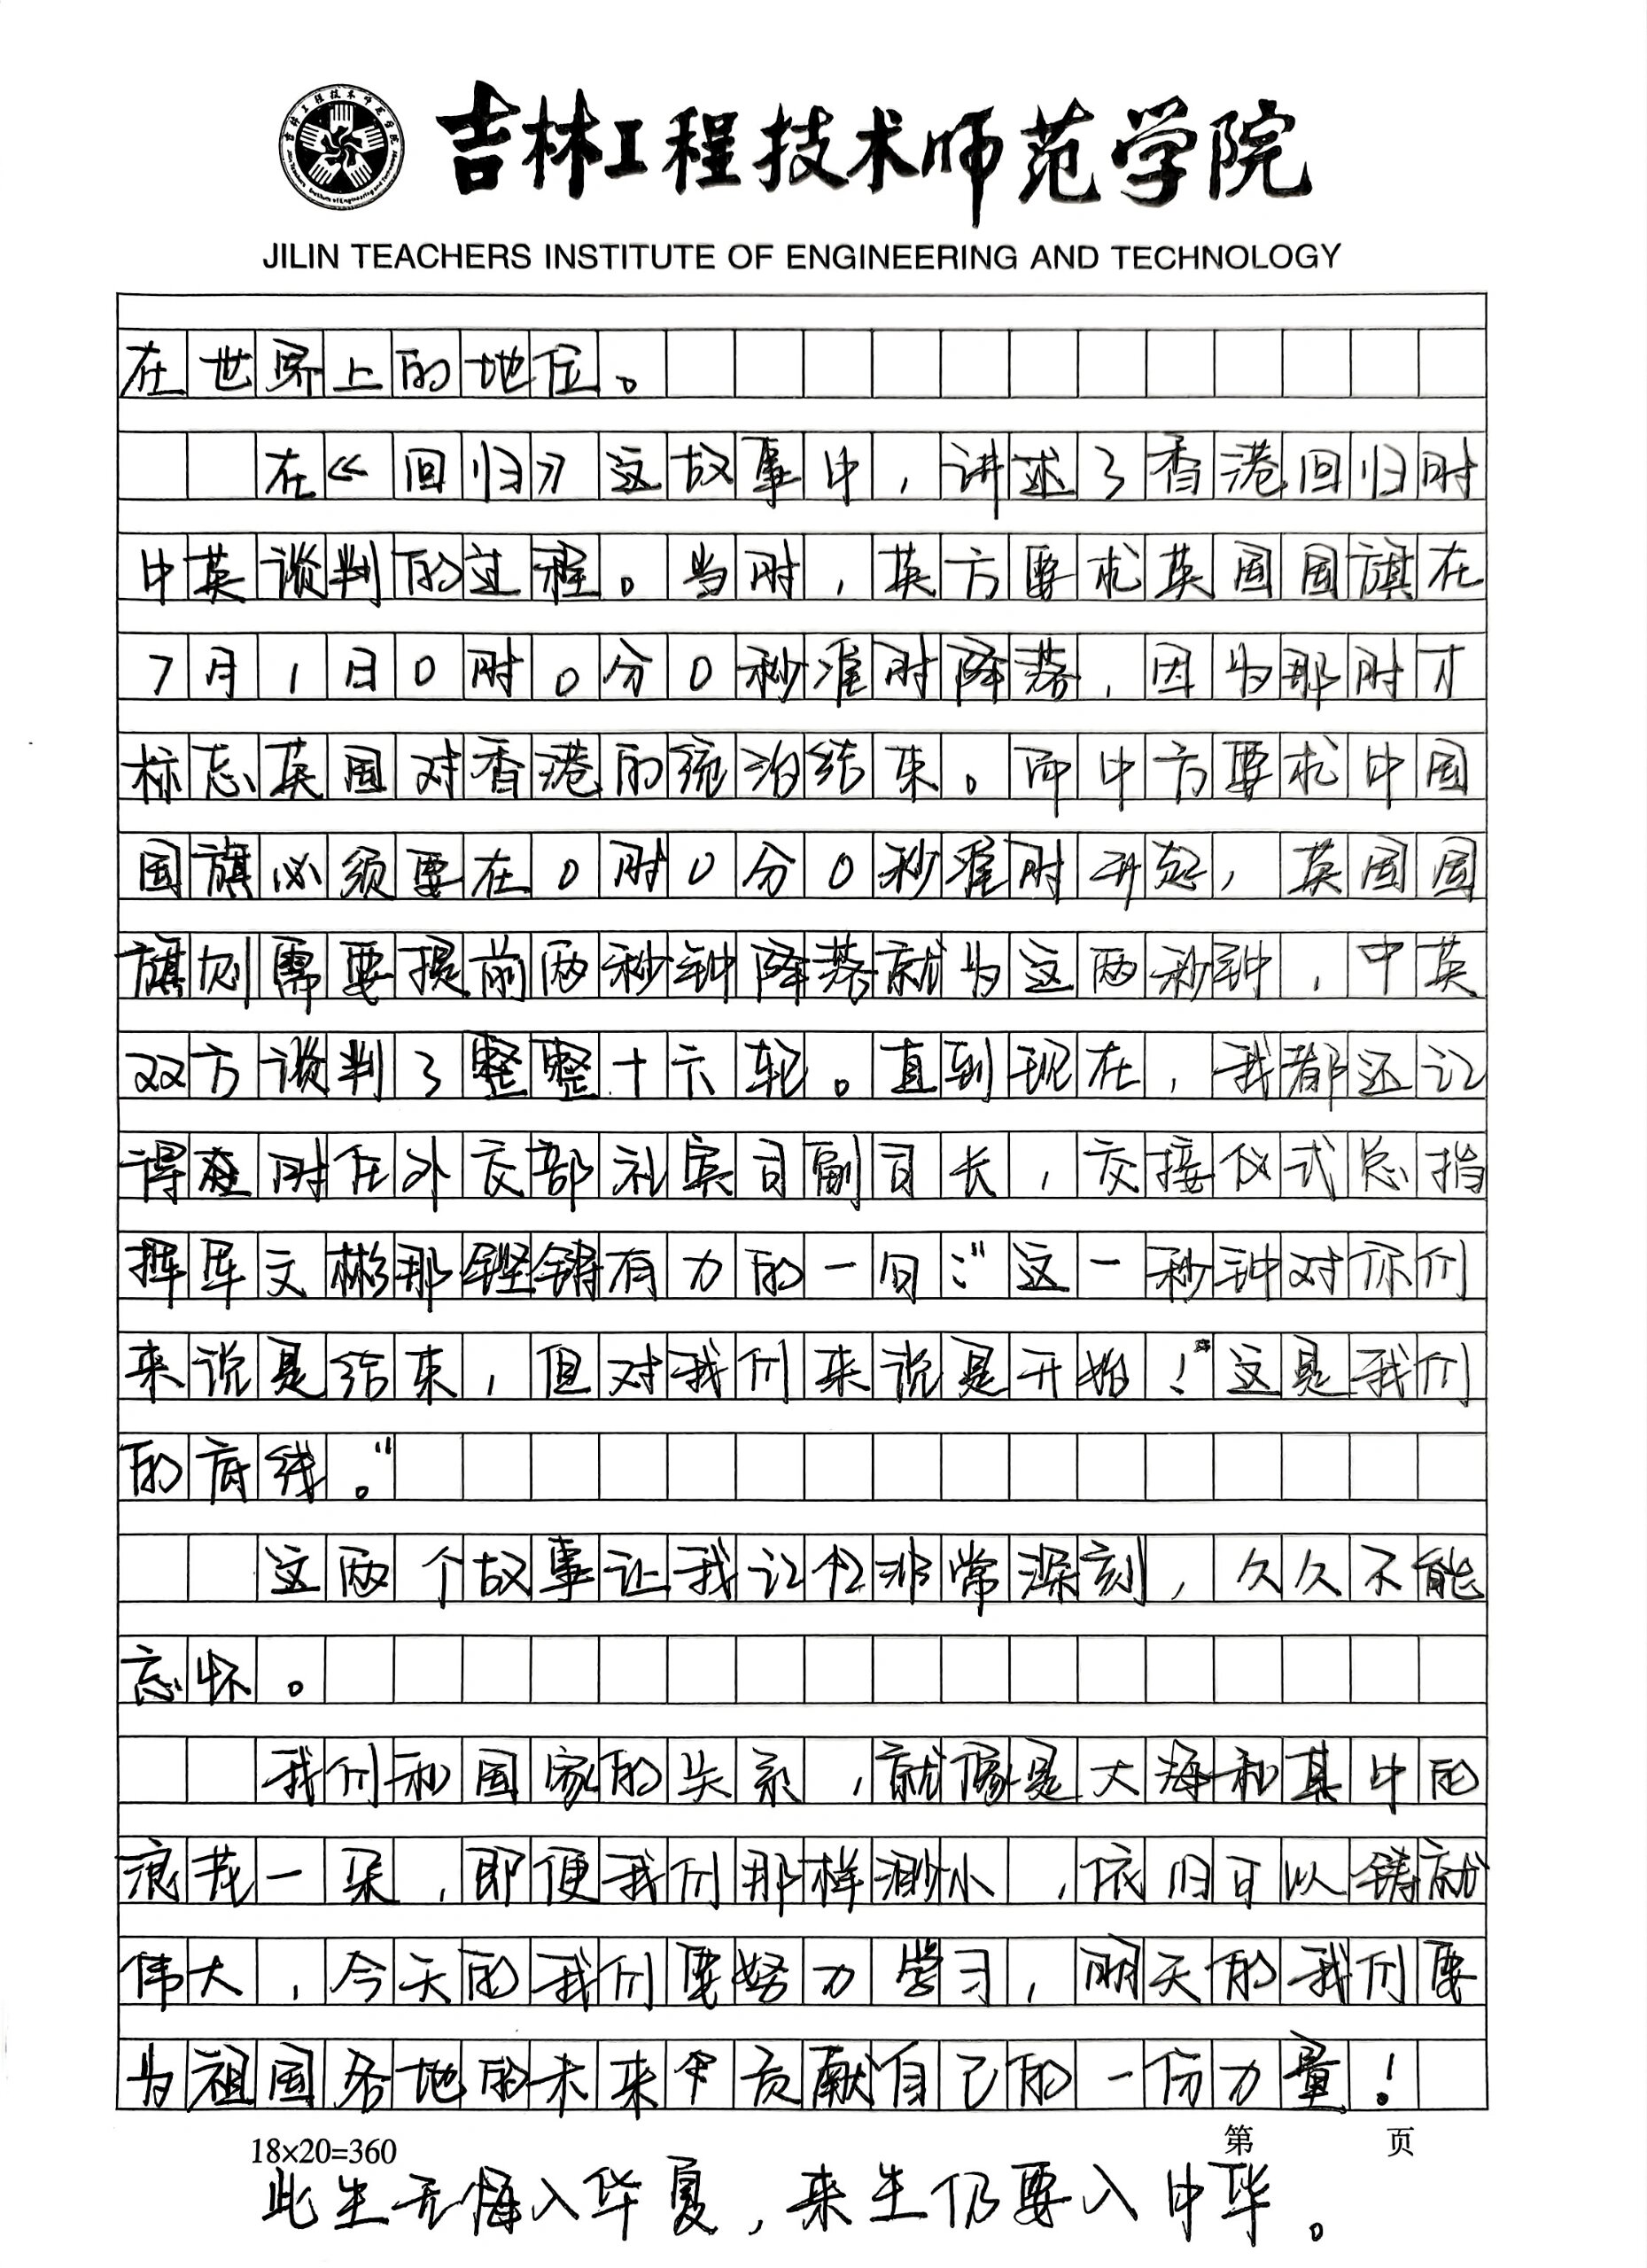 吉林工程技术师范学院
JILIN TEACHERS INSTITUTE OF ENGINEERING AND TECHNOLOGY
在世界上的地位。
在《回归》这故事中，讲述了香港回归时
中英谈判的过程。当时，英方要求英国国旗在
7月1日0时0分0秒准时降落，因为那时才
标志英国对香港的统治结束。而中方要求中国
国旗必须要在0时0分0秒准时升起，英国国
旗则需要提前两秒钟降落就为这两秒钟，中英
双方谈判了整整十六轮。直到现在，我都还记
得在时任外交部礼宾司副司长，交接仪式总指
挥库文彬那铿锵有力的一句：“这一秒钟对你们
来说是结束，但对我们来说是开始！”这是我们
的底线。”
这两个故事让我记忆非常深刻，久久不能
忘怀。
我们和国家的关系，就像是大海和其中的
浪花一朵，即便我们那样渺小，依旧可以铸就
伟大，今天的我们要努力学习，明天的我们要
为祖国各地的未来中贡献自己的一份力量！
18×20=360
第 页
此生无悔入华夏，来生仍要入中华。